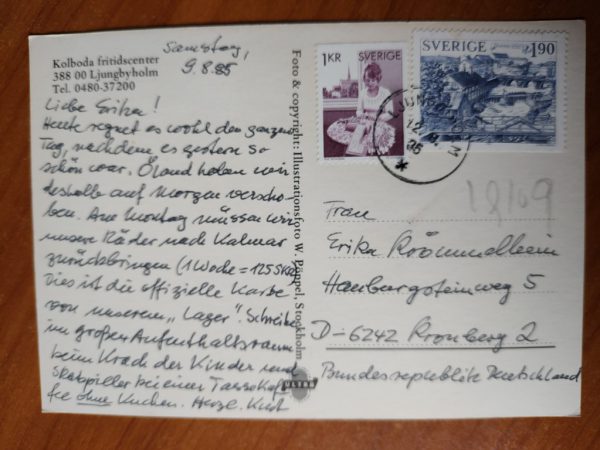 Kolboda fritidscenter
388 00 Ljungbyholm
Tel. 0480-37200
Samstag,
9.8.85
Liebe Erika!
Heute regnet es wohl den ganzen
Tag, nachdem es gestern so
schön war. Öland haben wir
deshalb auf morgen verscho-
ben. Am Montag müssen wir
unsere Räder nach Kalmar
zurückbringen (1 Woche = 125 SKr)
Dies ist die offizielle Karte
von unserem „Lager". Schreibe
im großen Aufenthaltsraum
beim Krach der Kinder und
Skatspieler bei einer Tasse Kaf-
fee ohne Kuchen. Herzl. Kurt
Foto & copyright: Illustrationsfoto W. Pöppel, Stockholm
ULTRA
1 KR SVERIGE
SVERIGE 1.90
12.8.
85
Frau
Erika
Hainburgsteinweg 5
D-6242 Kronberg 2
Bundesrepublik Deutschland